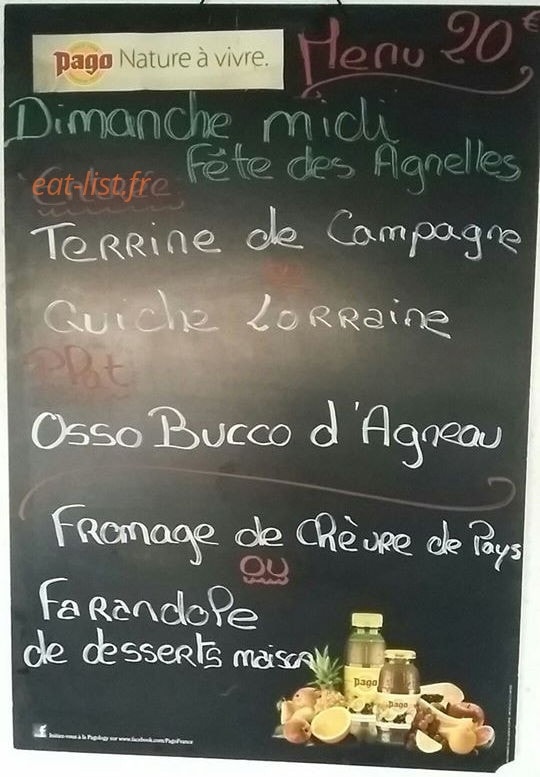 pago Nature à vivre.
Menu 20€
Dimanche midi
Fête des Agnelles
eat-list.fr
Terrine de Campagne
ou
Quiche Lorraine
Plat
Osso Bucco d'Agneau
Fromage de Chèvre de Pays
ou
Farandole
de desserts maison
pago
pago
Initiez-vous à la Pagology sur www.facebook.com/PagoFrance